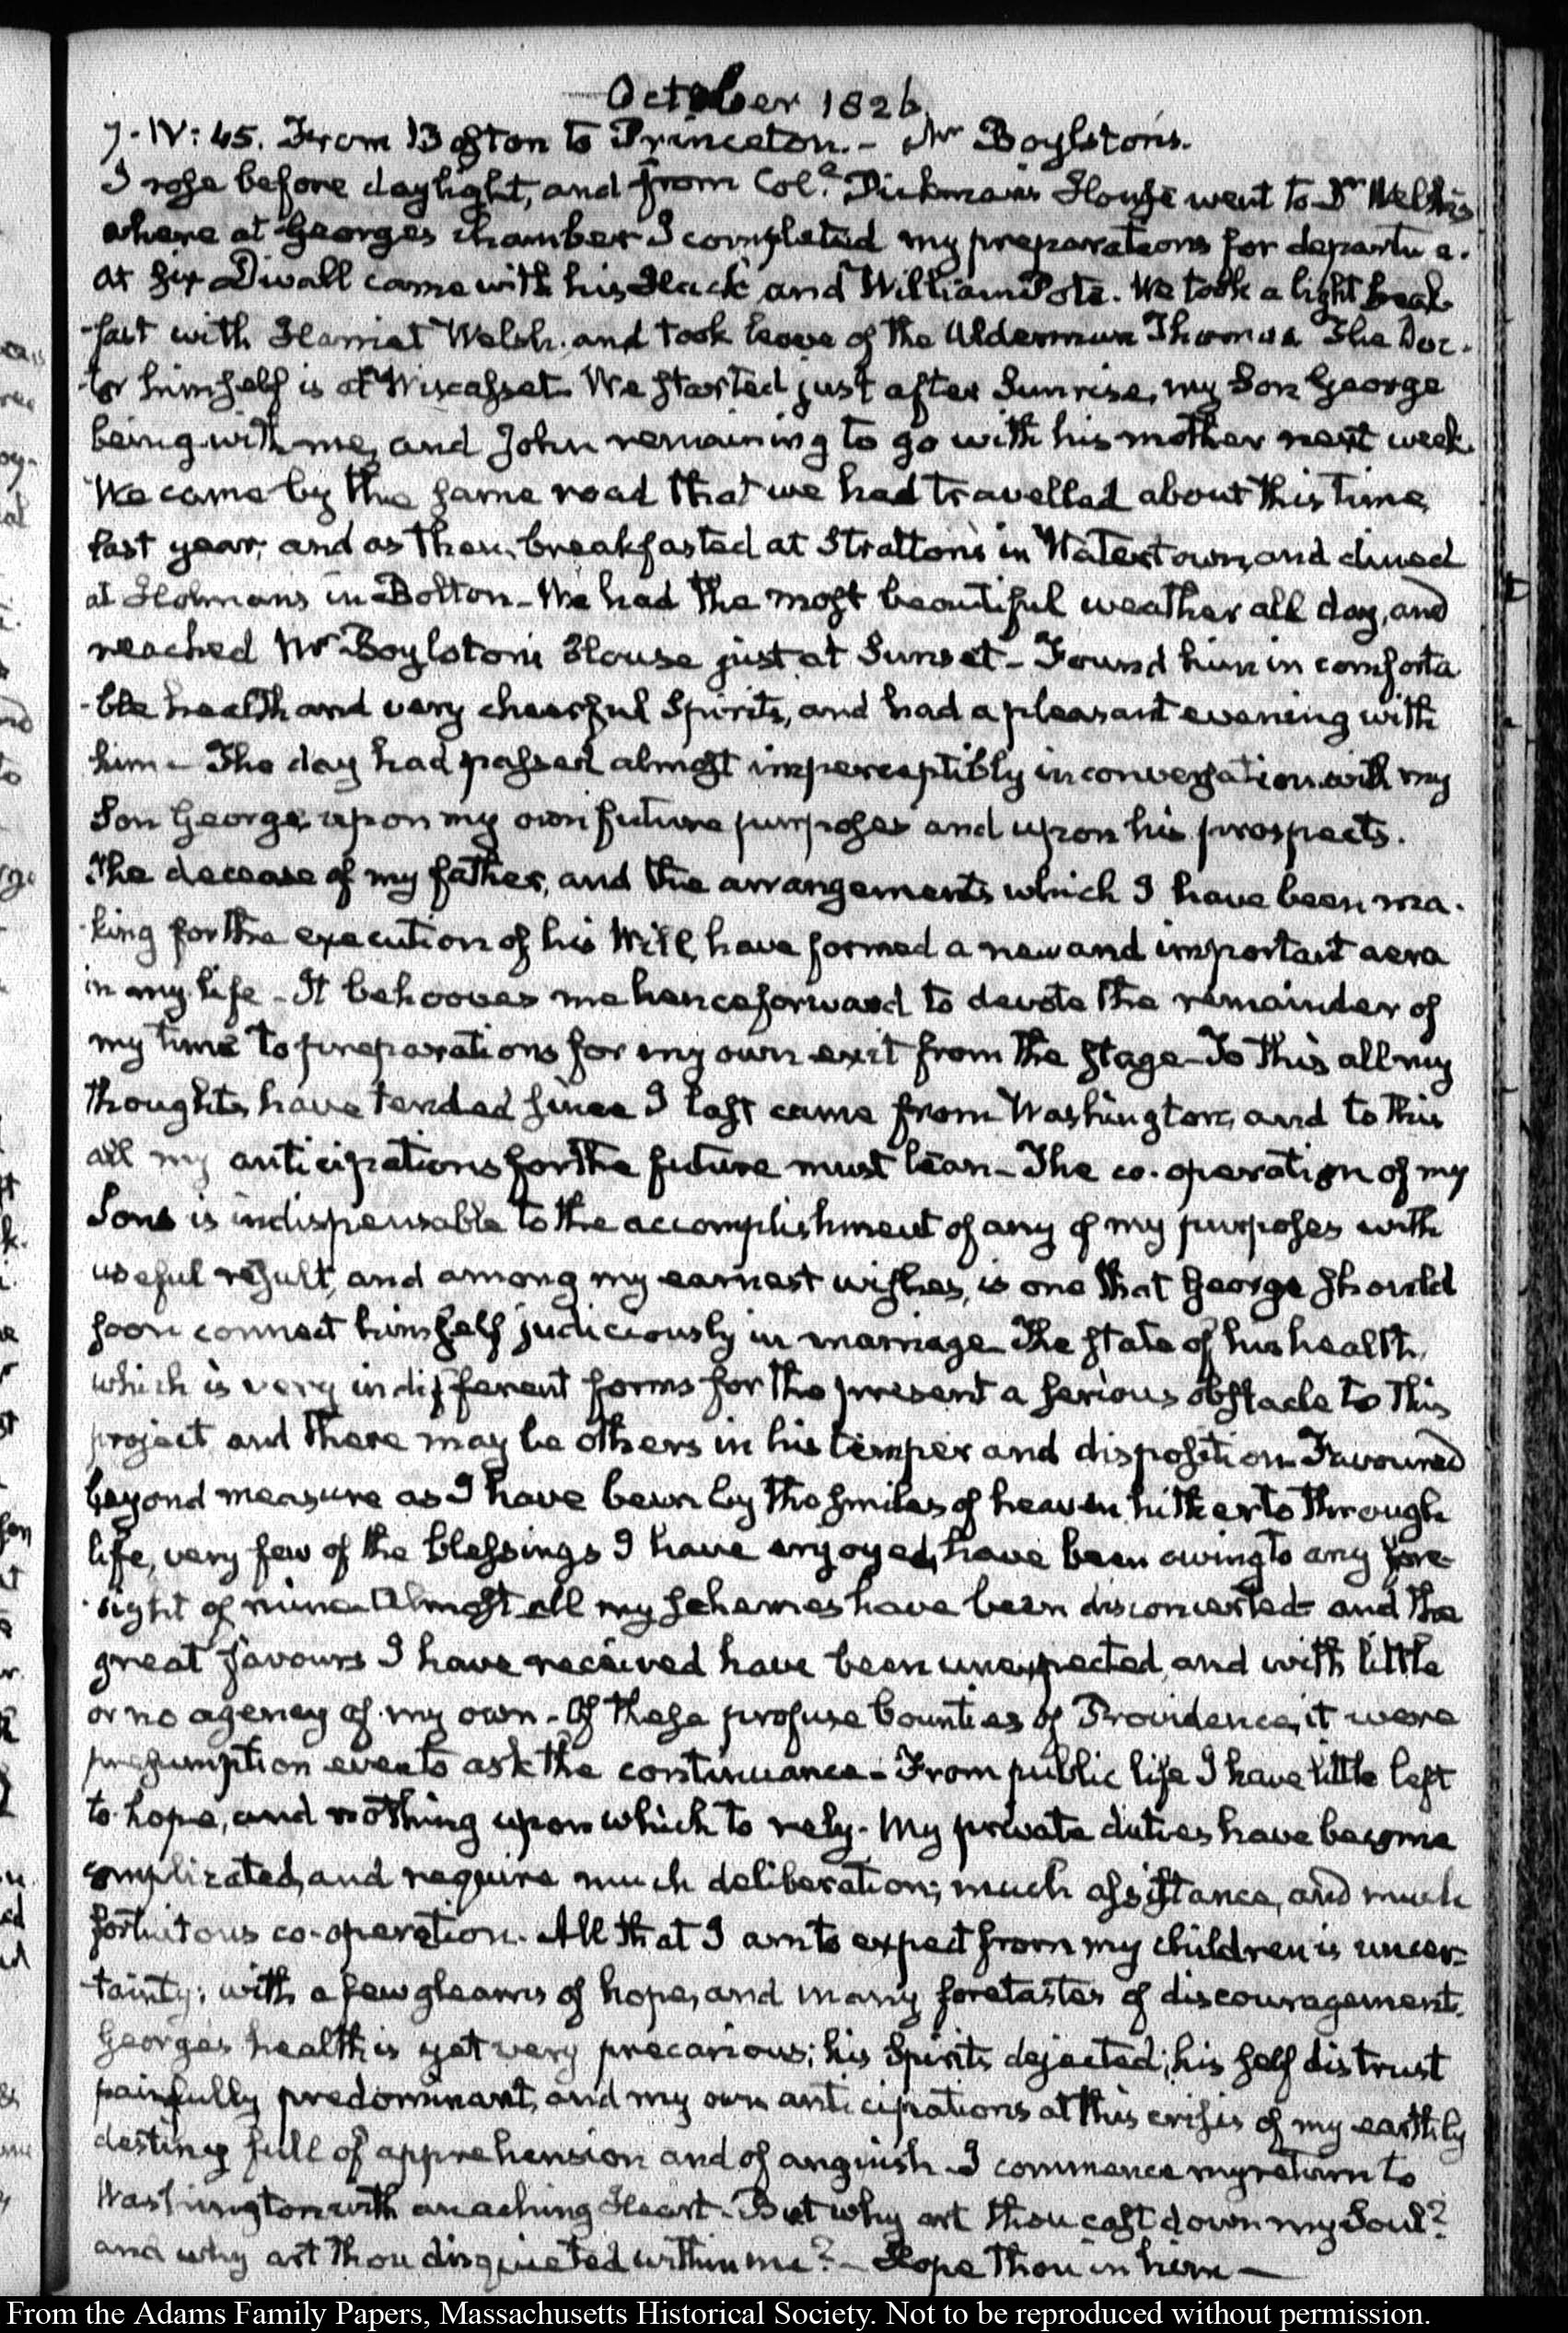 October 1826.
7. IV: 45. From Boston to Princeton. - Mr Boylston's.
I rose before daylight, and from Coll. Dickman's House went to Dr Welsh's
where at George's chamber I completed my preparations for departure.
At six Divall came with his Hack and William Pote. We took a light break
fast with Harriet Welsh, and took leave of the Alderman Thomas. The Doc-
tor himself is at Wiscasset. We started just after Sunrise, my Son George
being with me, and John remaining to go with his mother next week.
We came by the same road that we had travelled about this time
last year, and as then, breakfasted at Stratton's in Watertown, and dined
at Holman's in Bolton - We had the most beautiful weather all day, and
reached Mr Boylston's House just at Sunset - Found him in comforta
-ble health and very cheerful Spirits, and had a pleasant evening with
him - The day had passed almost imperceptibly in conversation with my
Son George, upon my own future purposes and upon his prospects.
The decease of my father, and the arrangements which I have been ma-
-king for the execution of his Will, have formed a new and important aera
in my life - It behooves me henceforward to devote the remainder of
my time to preparations for my own exit from the stage - To this all my
thoughts have tended since I last came from Washington, and to this
all my anticipations for the future must lean - The co-operation of my
Sons is indispensable to the accomplishment of any of my purposes with
useful result, and among my earnest wishes, is one that George should
soon connect himself judiciously in marriage - The state of his health,
which is very indifferent forms for the present a serious obstacle to this
project, and there may be others in his temper and disposition. Favoured
beyond measure as I have been by the smiles of heaven hitherto through
life, very few of the blessings I have enjoyed, have been owing to any fore-
-sight of mine - Almost all my schemes have been disconcerted - and the
great favours I have received have been unexpected, and with little
or no agency of my own - Of these profuse bounties of Providence, it were
presumption even to ask the continuance - From public life I have little left
to hope, and nothing upon which to rely. My private duties have become
complicated, and require much deliberation; much assistance, and much
fortuitous co-operation. All that I am to expect from my children is uncer-
-tainty; with a few gleams of hope, and many foretastes of discouragement.
George's health is yet very precarious; his Spirits dejected; his self distrust
painfully predominant, and my own anticipations at this crisis of my earthly
destiny full of apprehension and of anguish - I commence my return to
Washington with an aching Heart - But why art thou cast down my Soul?
and why art thou disquieted within me? - Hope thou in him -
From the Adams Family Papers, Massachusetts Historical Society. Not to be reproduced without permission.